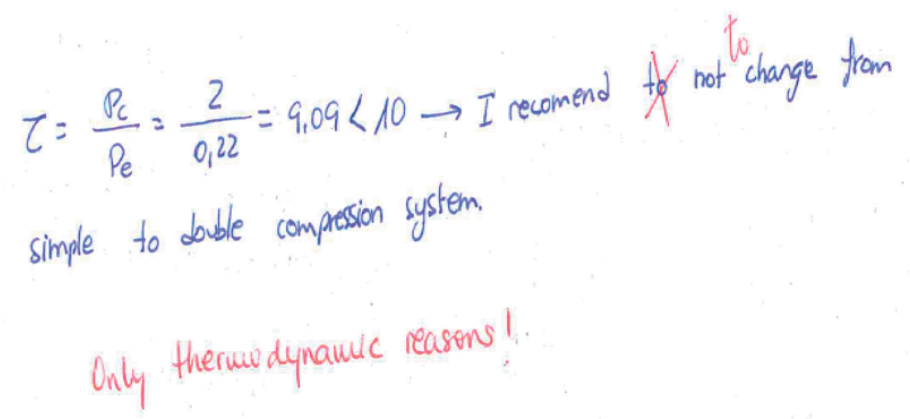 τ = Pc/Pe = 2/0,22 = 9,09 < 10 → I recomend to not to change from
simple to double compression system.
Only thermodynamic reasons!